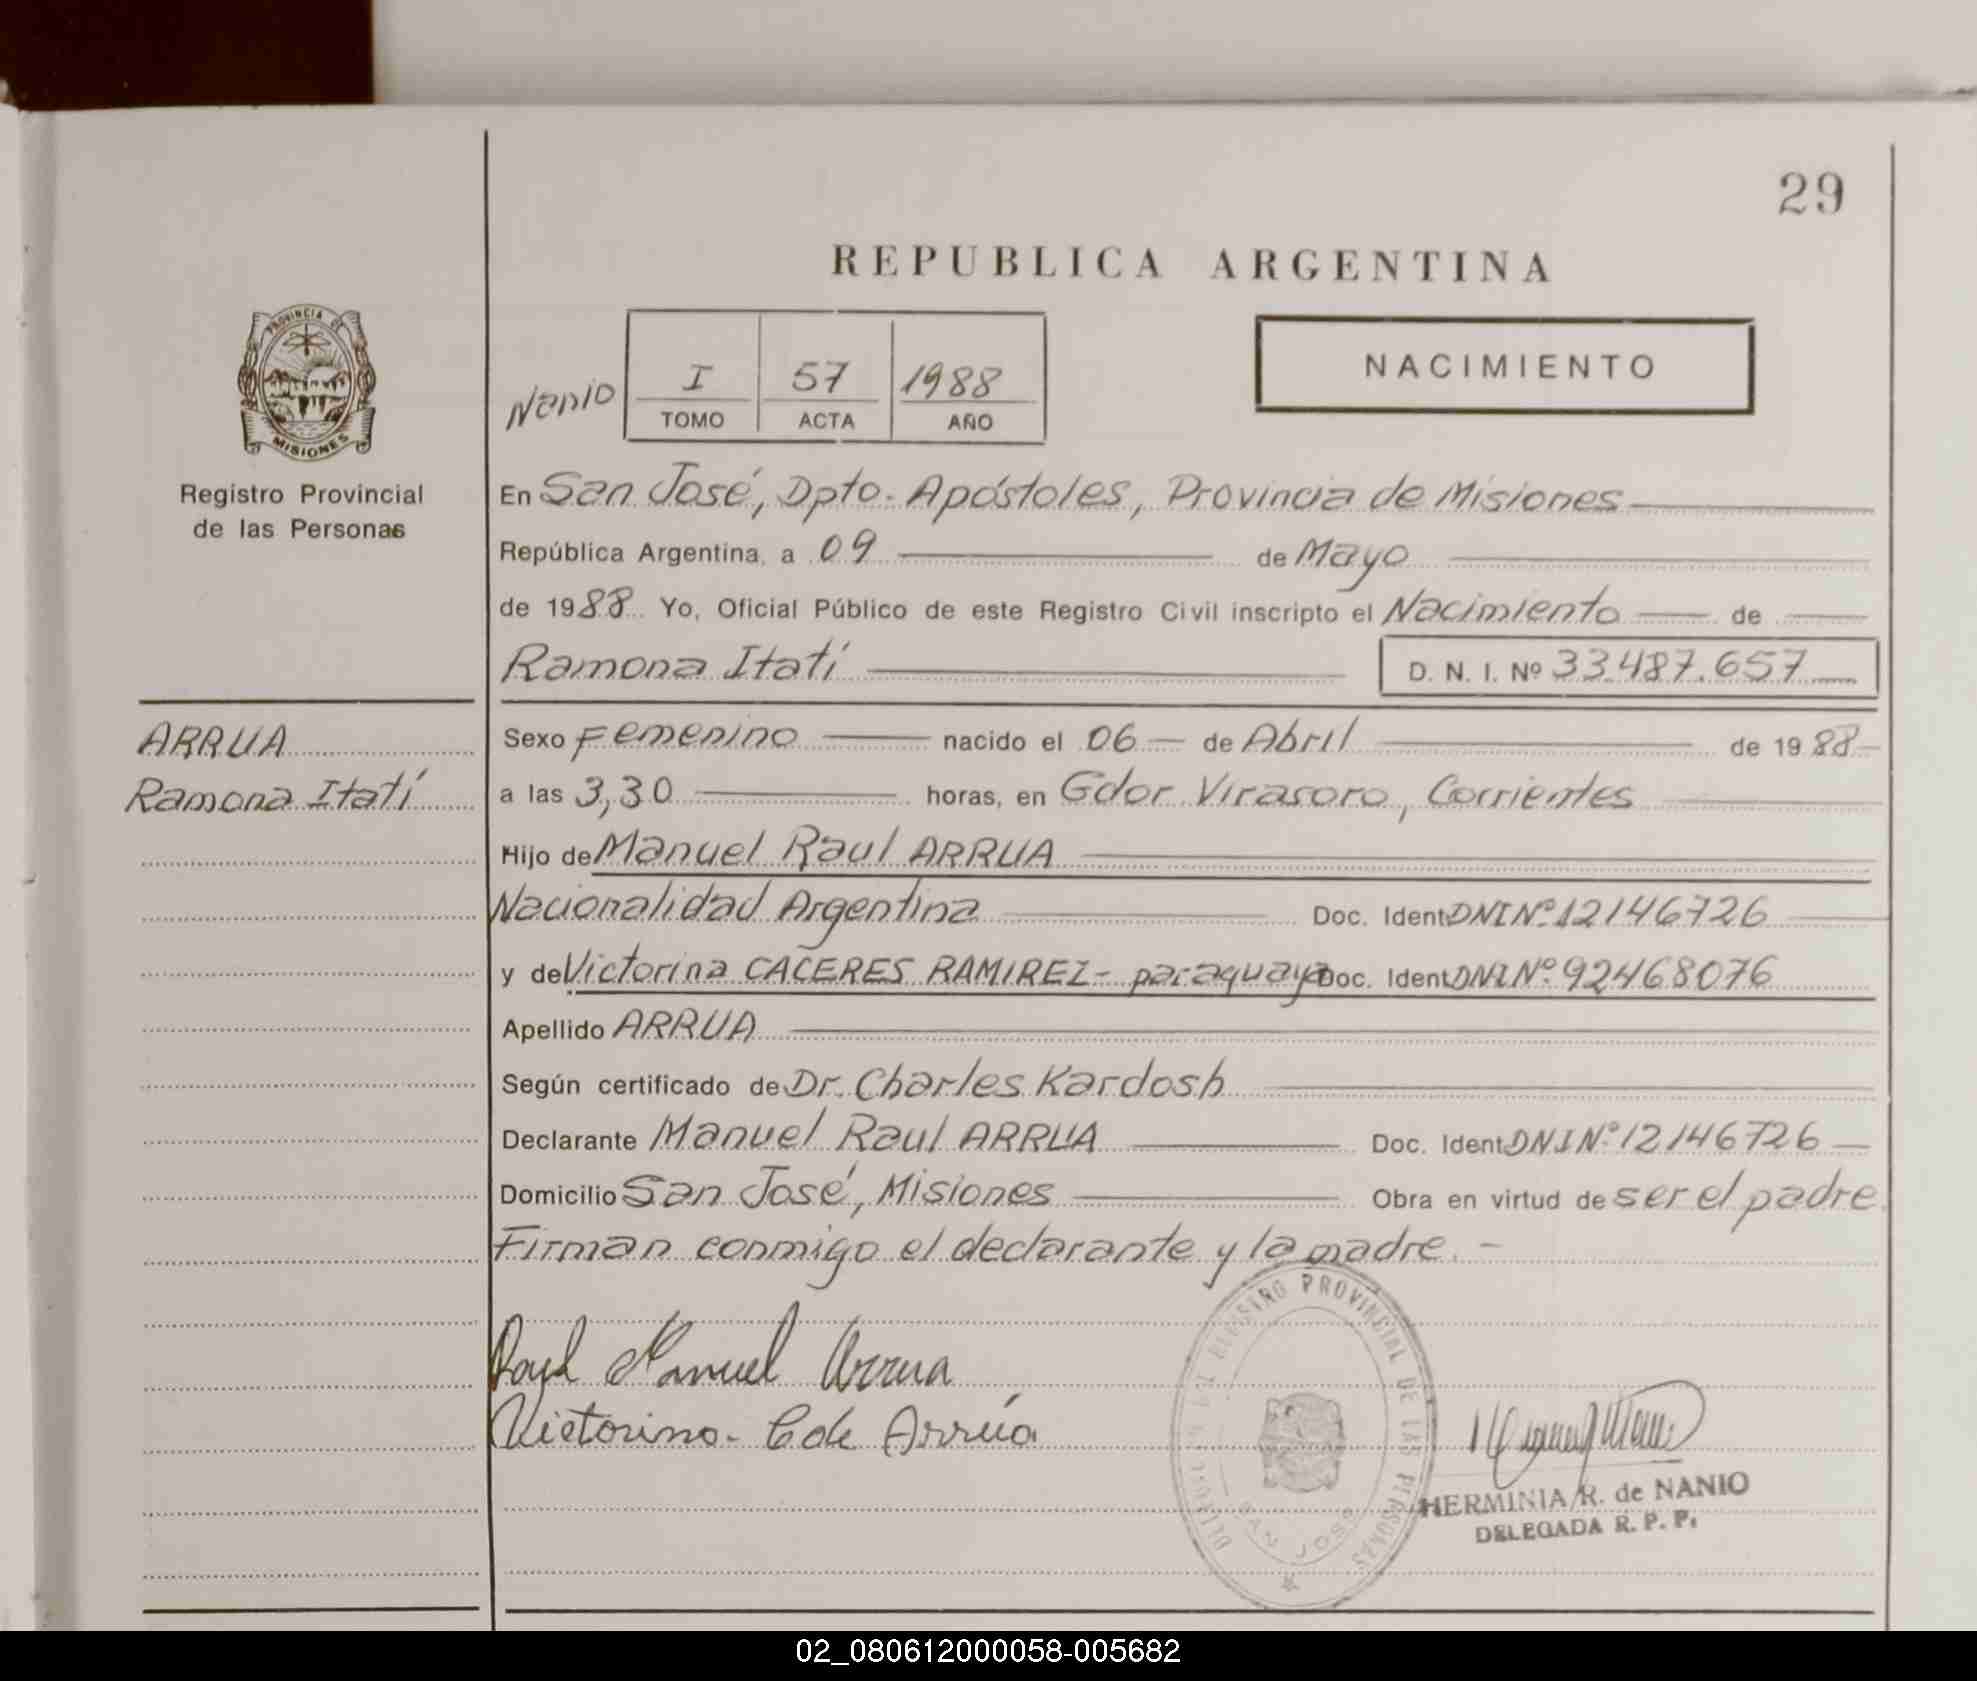 29
REPUBLICA ARGENTINA
NACIMIENTO
PROVINCIA DE
MISIONES
Registro Provincial
de las Personas
Nanio
I 57 1988
TOMO ACTA AÑO
En San José, Dpto. Apóstoles, Provincia de Misiones
República Argentina, a 09 de Mayo
de 1988 Yo, Oficial Público de este Registro Civil inscripto el Nacimiento de
Ramona Itatí D. N. I. Nº 33.487.657
ARRUA
Ramona Itatí
Sexo Femenino nacido el 06 de Abril de 1988
a las 3,30 horas, en Gdor Virasoro, Corrientes
Hijo de Manuel Raul ARRUA
Nacionalidad Argentina Doc. Ident DNI Nº 12146726
y de Victorina CACERES RAMIREZ - paraguaya Doc. Ident DNI Nº 92468076
Apellido ARRUA
Según certificado de Dr. Charles Kardosh
Declarante Manuel Raul ARRUA Doc. Ident DNI Nº 12146726
Domicilio San José, Misiones Obra en virtud de ser el padre.
Firman conmigo el declarante y la madre. -
Raul Manuel Arrua
Victorina. C de Arrúa
REGISTRO PROVINCIAL DE LAS PERSONAS
SAN JOSE
HERMINIA R. de NANIO
DELEGADA R. P. P.
02_080612000058-005682